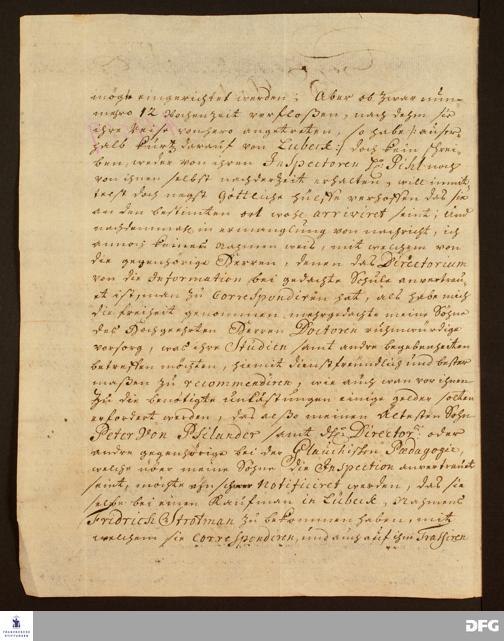 mögte eingerichtet werden; Aber ob zwar nun-
mehro 12 Wochenzeit verfloßen, nach dehm sie
ihre Reise von hero angetreten, so habe |: außer-
halb kurtz darauf von Lübeck :| doch kein schrei-
ben, weder von ihren Inspectoren Hr. Pihl noch
von ihnen selbst nach der zeit erhalten, will inmit-
telst doch negst Göttliche hülffe verhoffen das sie
an den bestimten ort wohl arriviret seint; Und
nachdemmahl in ermanglung von nachricht, ich
annoch keinen nahmen weis, mit welchem von
die gegenhörige Herren, denen das Directorium
von die Information bei gedachte Schule anvertrau-
et ist, man zu Correspondiren hat, als habe mich
die freiheit genommen, mehrgedachte meine Söhne
des Hochgeehrten Herren Doctoren rühmwürdige
vorsorg, was ihre Studien samt andre begebenheiten
betreffen möchten, hiemit dienstfreundlich und bester
maßen zu recommendiren, wie auch wan vor ihnen
zu die benötigte unkostungen einige gelder solten
erfordert werden, das alßo meinen Eltesten Sohn
Peter Von Psilander samt Hr. Director oder
andre gegenhörige bei der Glauchischen Pædagogie,
welche über meine Söhne die Inspection anvertrauet
seint, möchte Notificiret werden, das sie
selbe bei einen Kaufman in Lübeck, Nahmens
Fridrich Strotman zu bekommen haben, mit
welchem sie Correspondiren, und auch auf ihm Trassiren
FRANCKESCHE
STIFTUNGEN
DFG